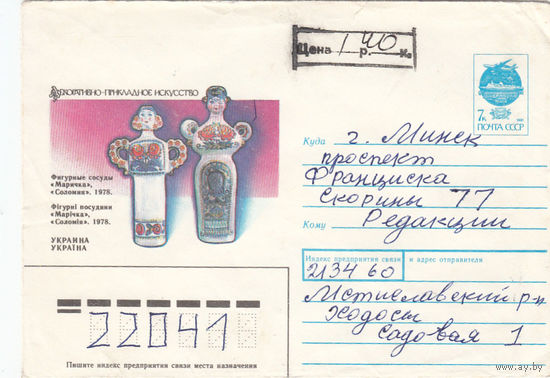 Цена 1 р. 40 к.
ДЕКОРАТИВНО-ПРИКЛАДНОЕ ИСКУССТВО
7 к.
1991
ПОЧТА СССР
Фигурные сосуды
«Маричка»,
«Соломия». 1978.
Фігурні посудини
«Марічка»,
«Соломія». 1978.
УКРАИНА
УКРАЇНА
Куда г. Минск
проспект
Франциска
Скорины 77
Кому Редакции
Индекс предприятия связи и адрес отправителя
213460
Мстиславский р-н
Ходосы
Садовая 1
22041
Пишите индекс предприятия связи места назначения
www.ay.by